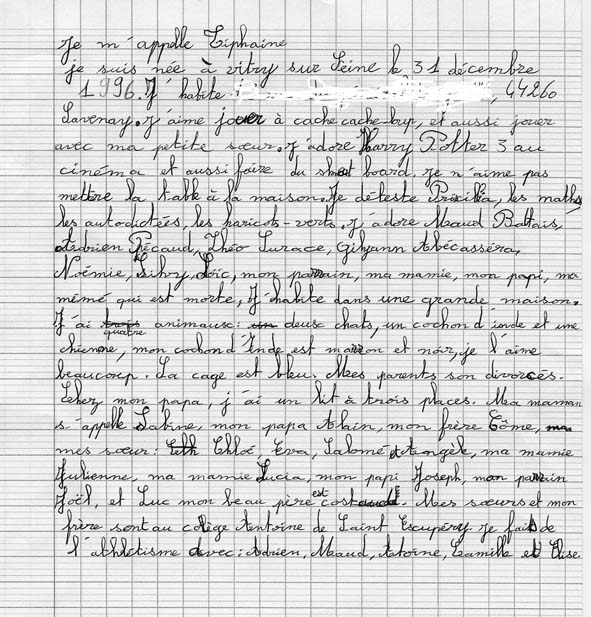 Je m'appelle Tiphaine
je suis née à vitry sur Seine le 31 décembre
1996. J'habite , 44260
Savenay. J'aime jouer à cache cache-loup, et aussi jouer
avec ma petite sœur. J'adore Harry Potter 3 au
cinéma et aussi faire du skat board. Je n'aime pas
mettre la table à la maison. Je déteste Priscilia, les maths,
les autodictées, les haricots-verts. J'adore Maud Battais,
Adrien Pécaud, Théo Surace, Abécasséra,
Noémie, Loïc, mon parrain, ma mamie, mon papi, ma
mémé qui est morte, J'habite dans une grande maison.
J'ai quatre animaux: deux chats, un cochon d'inde et une
chienne, mon cochon d'Inde est marron et noir, je l'aime
beaucoup. La cage est bleu. Mes parents son divorcés.
Chez mon papa, j'ai un lit à trois places. Ma maman
s'appelle Sabine, mon papa Alain, mon frère Côme,
mes sœur: Chloé, Eva, Salomé et Angèle, ma mamie
Julienne, ma mamie Lucia, mon papi Joseph, mon parrain
Joël, et Luc mon beau père est costaud. Mes sœurs et mon
frère sont au collège Antoine de Saint Escupéry. Je fais de
l'athlétisme avec: Adrien, Maud, Antoine, Camille et Elise.